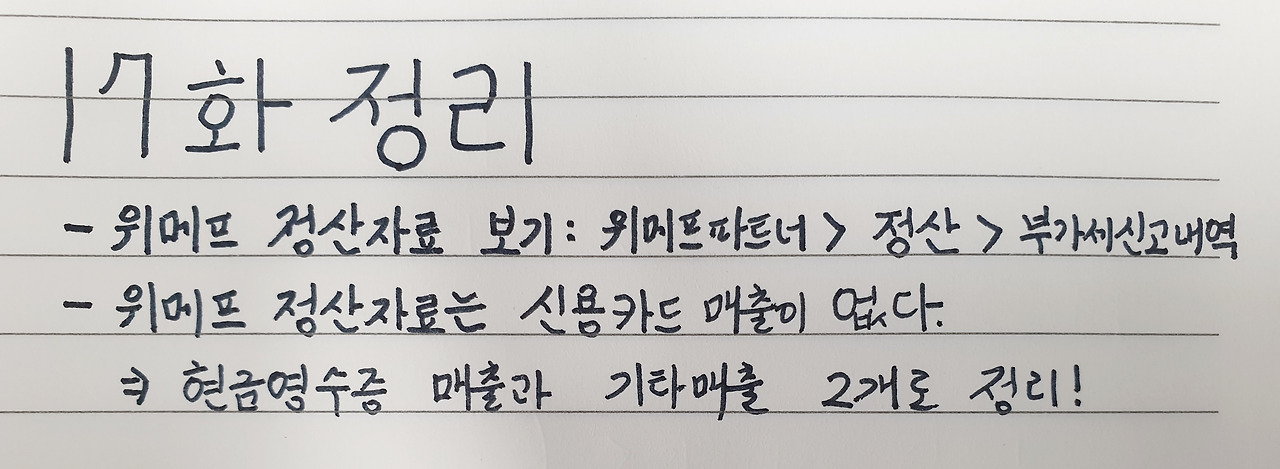 17화 정리
- 위메프 정산자료 보기: 위메프파트너 > 정산 > 부가세신고내역
- 위메프 정산자료는 신용카드 매출이 없다.
⇒ 현금영수증 매출과 기타매출 2개로 정리!